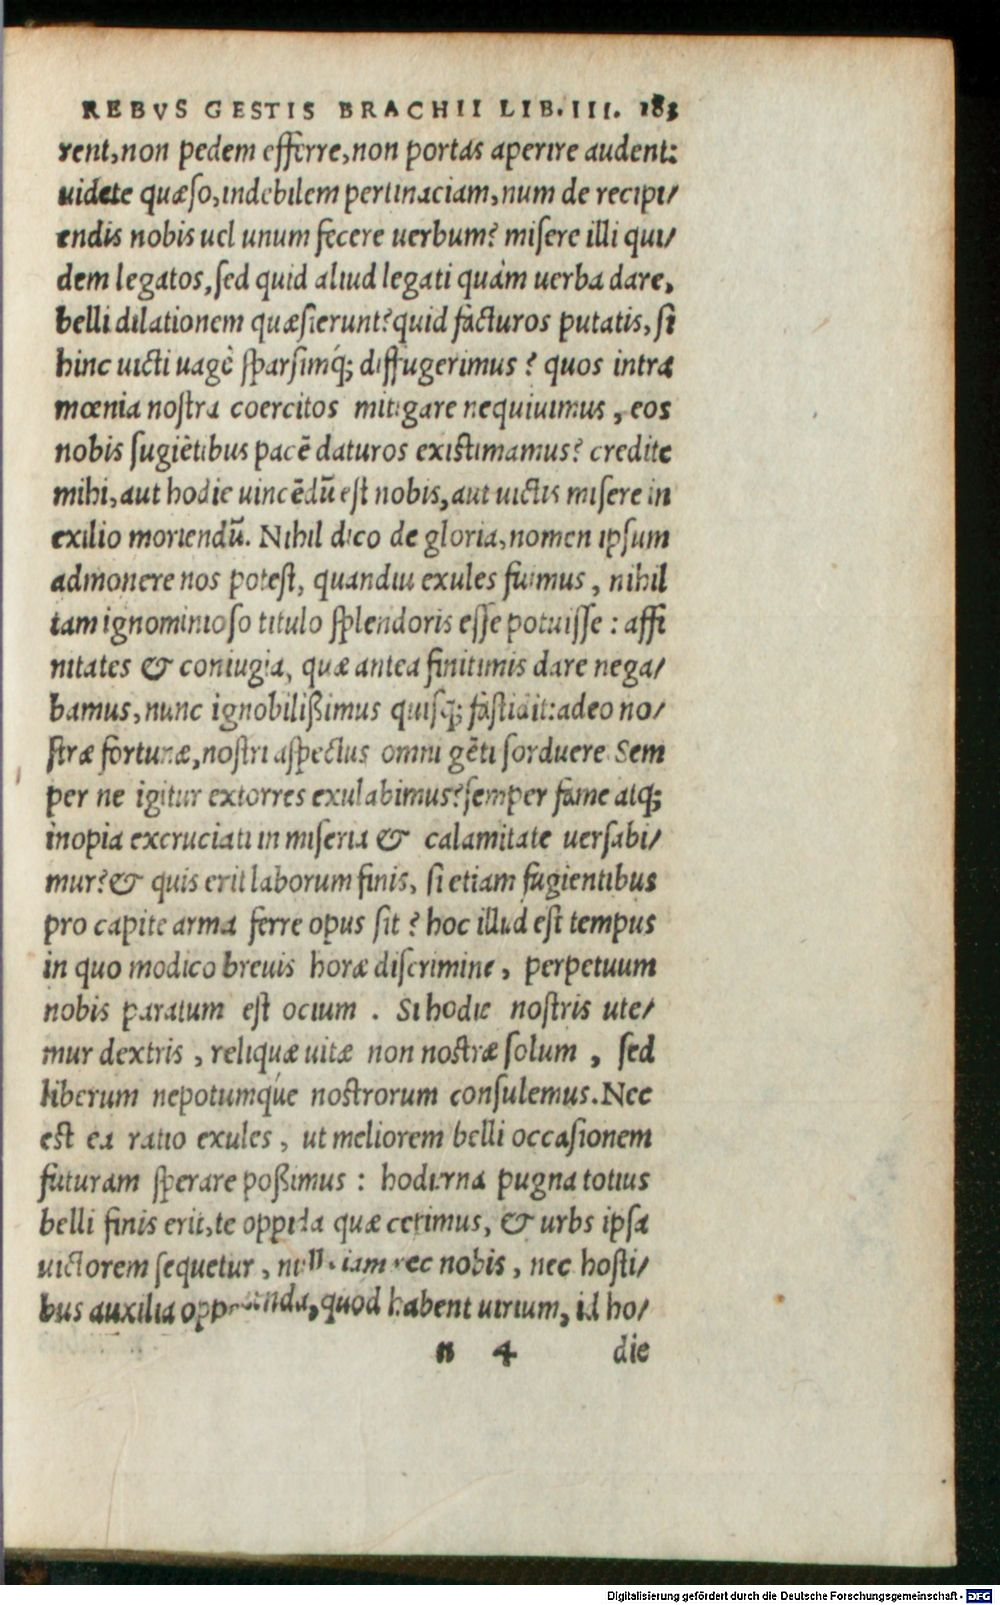 REBVS GESTIS BRACHII LIB. III. 183
rent, non pedem efferre, non portas aperire audent:
uidete quæso, indebilem pertinaciam, num de recipi/
endis nobis uel unum fecere uerbum? misere illi qui/
dem legatos, sed quid aliud legati quàm uerba dare,
belli dilationem quæsierunt? quid facturos putatis, si
hinc uicti uagè sparsimq́; diffugerimus? quos intra
mœnia nostra coercitos mitigare nequiuimus, eos
nobis fugiētibus pacē daturos existimamus? credite
mihi, aut hodie uincēdū est nobis, aut uictis misere in
exilio moriendū. Nihil dico de gloria, nomen ipsum
admonere nos potest, quandiu exules fuimus, nihil
tam ignominioso titulo splendoris esse potuisse: affi
nitates & coniugia, quæ antea finitimis dare nega/
bamus, nunc ignobilißimus quisq; fastidit: adeo no/
stræ fortunæ, nostri aspectus omni gēti sorduere. Sem
per ne igitur extorres exulabimus? semper fame atq;
inopia excruciati in miseria & calamitate uersabi/
mur? & quis erit laborum finis, si etiam fugientibus
pro capite arma ferre opus sit? hoc illud est tempus
in quo modico breuis horæ discrimine, perpetuum
nobis paratum est ocium. Si hodie nostris ute/
mur dextris, reliquæ uitæ non nostræ solum, sed
liberum nepotumq́ue nostrorum consulemus. Nec
est ea ratio exules, ut meliorem belli occasionem
futuram sperare poßimus: hodierna pugna totius
belli finis erit, te oppida quæ cerimus, & urbs ipsa
uictorem sequetur, iam nec nobis, nec hosti/
bus auxilia quod habent uirium, id ho/
n 4 die
Digitalisierung gefördert durch die Deutsche Forschungsgemeinschaft - DFG